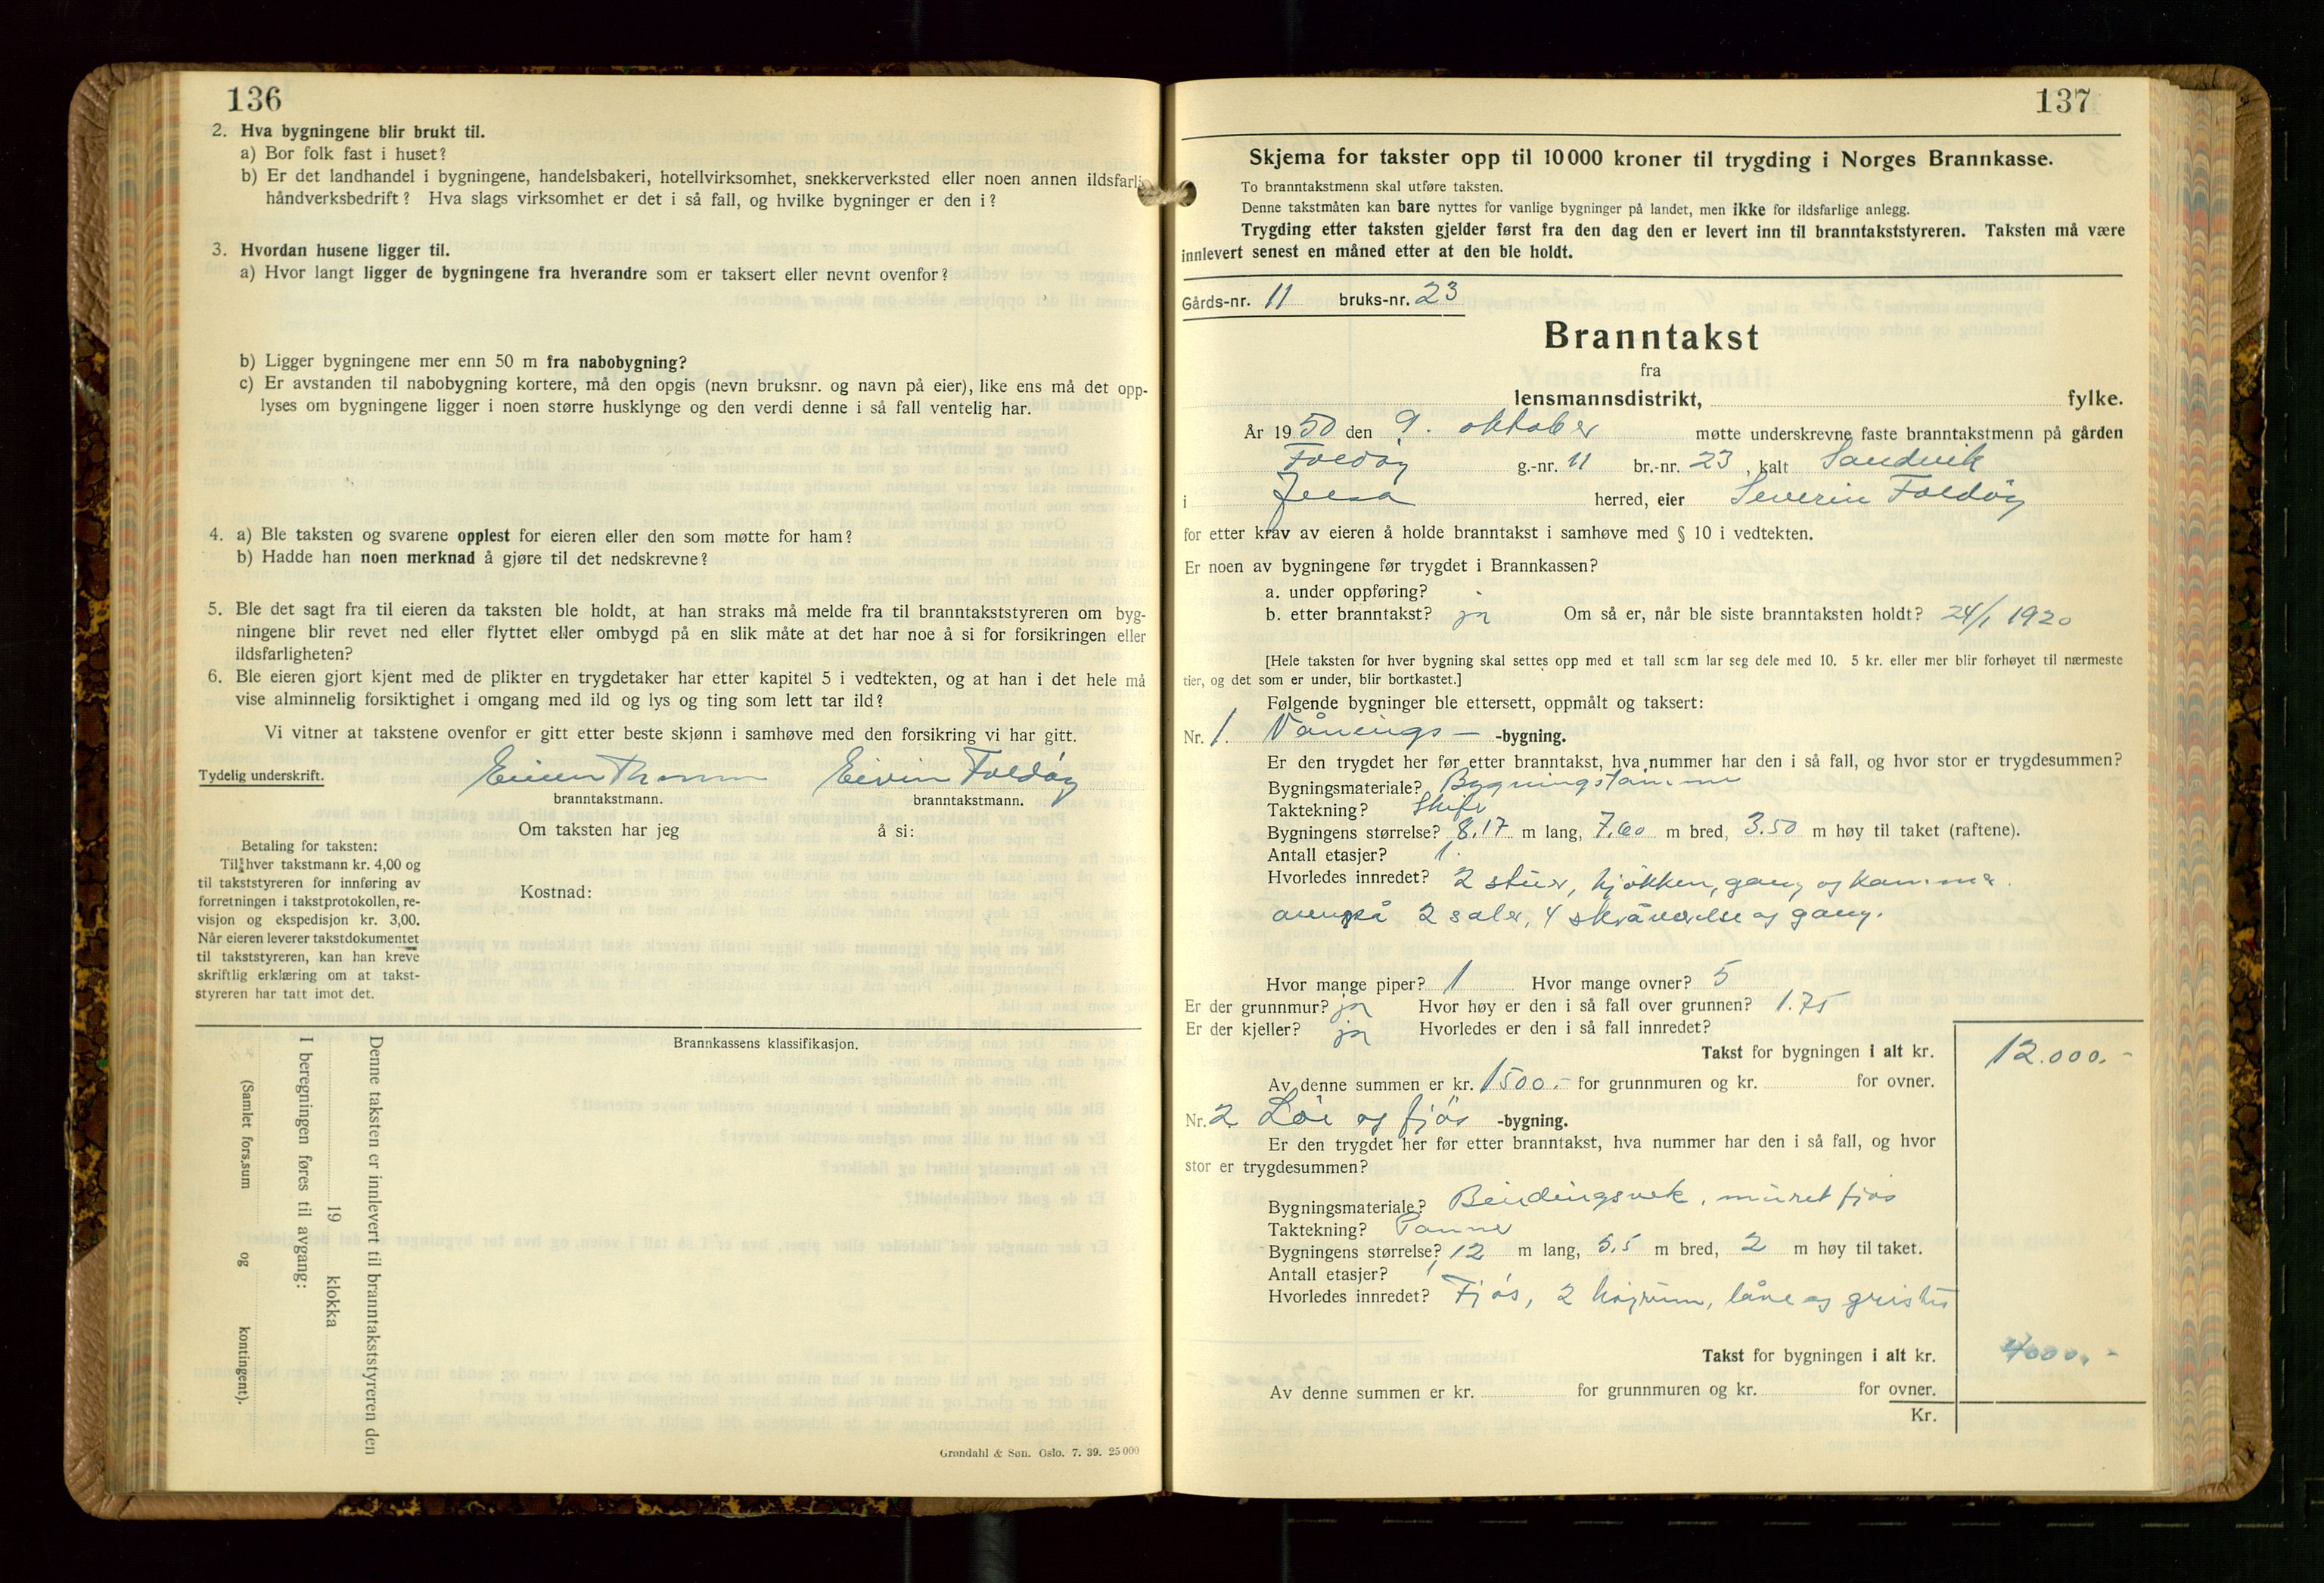 136
2. Hva bygningene blir brukt til.
a) Bor folk fast i huset?
b) Er det landhandel i bygningene, handelsbakeri, hotellvirksomhet, snekkerverksted eller noen annen ildsfarlig
håndverksbedrift? Hva slags virksomhet er det i så fall, og hvilke bygninger er den i?
3. Hvordan husene ligger til.
a) Hvor langt ligger de bygningene fra hverandre som er taksert eller nevnt ovenfor?
b) Ligger bygningene mer enn 50 m fra nabobygning?
c) Er avstanden til nabobygning kortere, må den opgis (nevn bruksnr. og navn på eier), like ens må det opp-
lyses om bygningene ligger i noen større husklynge og den verdi denne i så fall ventelig har.
4. a) Ble taksten og svarene opplest for eieren eller den som møtte for ham?
b) Hadde han noen merknad å gjøre til det nedskrevne?
5. Ble det sagt fra til eieren da taksten ble holdt, at han straks må melde fra til branntakststyreren om byg-
ningene blir revet ned eller flyttet eller ombygd på en slik måte at det har noe å si for forsikringen eller
ildsfarligheten?
6. Ble eieren gjort kjent med de plikter en trygdetaker har etter kapitel 5 i vedtekten, og at han i det hele må
vise alminnelig forsiktighet i omgang med ild og lys og ting som lett tar ild?
Vi vitner at takstene ovenfor er gitt etter beste skjønn i samhøve med den forsikring vi har gitt.
Tydelig underskrift. Eivin Foldøy
branntakstmann. branntakstmann.
Om taksten har jeg å si:
Betaling for taksten:
Til hver takstmann kr. 4,00 og
til takststyreren for innføring av
forretningen i takstprotokollen, re-
visjon og ekspedisjon kr. 3,00.
Når eieren leverer takstdokumentet
til takststyreren, kan han kreve
skriftlig erklæring om at takst-
styreren har tatt imot det.
Kostnad:
Denne taksten er innlevert til branntakststyreren den
19 klokka
I beregningen føres til avgang:
(Samlet fors.sum og kontingent).
Brannkassens klassifikasjon.
Grøndahl & Søn. Oslo. 7. 39. 25 000
137
Skjema for takster opp til 10 000 kroner til trygding i Norges Brannkasse.
To branntakstmenn skal utføre taksten.
Denne takstmåten kan bare nyttes for vanlige bygninger på landet, men ikke for ildsfarlige anlegg.
Trygding etter taksten gjelder først fra den dag den er levert inn til branntakststyreren. Taksten må være
innlevert senest en måned etter at den ble holdt.
Gårds-nr. 11 bruks-nr. 23
Branntakst
fra
lensmannsdistrikt, fylke.
År 1950 den 9. oktober møtte underskrevne faste branntakstmenn på gården
Foldøy g.-nr. 11 br.-nr. 23, kalt Sandvik
i Jelsa herred, eier Severin Foldøy
for etter krav av eieren å holde branntakst i samhøve med § 10 i vedtekten.
Er noen av bygningene før trygdet i Brannkassen?
a. under oppføring?
b. etter branntakst? ja Om så er, når ble siste branntaksten holdt? 24/1 1920
[Hele taksten for hver bygning skal settes opp med et tall som lar seg dele med 10. 5 kr. eller mer blir forhøyet til nærmeste
tier, og det som er under, blir bortkastet.]
Følgende bygninger ble ettersett, oppmålt og taksert:
Nr. 1. Vånings- -bygning.
Er den trygdet her før etter branntakst, hva nummer har den i så fall, og hvor stor er trygdesummen?
Bygningsmateriale? Bygningstømmer
Taktekning? Skifer
Bygningens størrelse? 8.17 m lang, 7.60 m bred, 3.50 m høy til taket (raftene).
Antall etasjer? 1.
Hvorledes innredet? 2 stuer, kjøkken, gang og kammer.
ovenpå 2 saler, 4 skråværelse og gang.
Hvor mange piper? 1 Hvor mange ovner? 5
Er der grunnmur? ja Hvor høy er den i så fall over grunnen? 1.75
Er der kjeller? ja Hvorledes er den i så fall innredet?
Takst for bygningen i alt kr. 12.000.-
Av denne summen er kr. 1500.- for grunnmuren og kr. for ovner.
Nr. 2 Løe og fjøs -bygning.
Er den trygdet her før etter branntakst, hva nummer har den i så fall, og hvor
stor er trygdesummen?
Bygningsmateriale? Bindingsverk, muret fjøs
Taktekning? Panner
Bygningens størrelse? 12 m lang, 5,5 m bred, 2 m høy til taket.
Antall etasjer? 1
Hvorledes innredet? Fjøs, 2 høyrum, låve og grishus
Takst for bygningen i alt kr. 4000.-
Av denne summen er kr. for grunnmuren og kr. for ovner.
Kr.